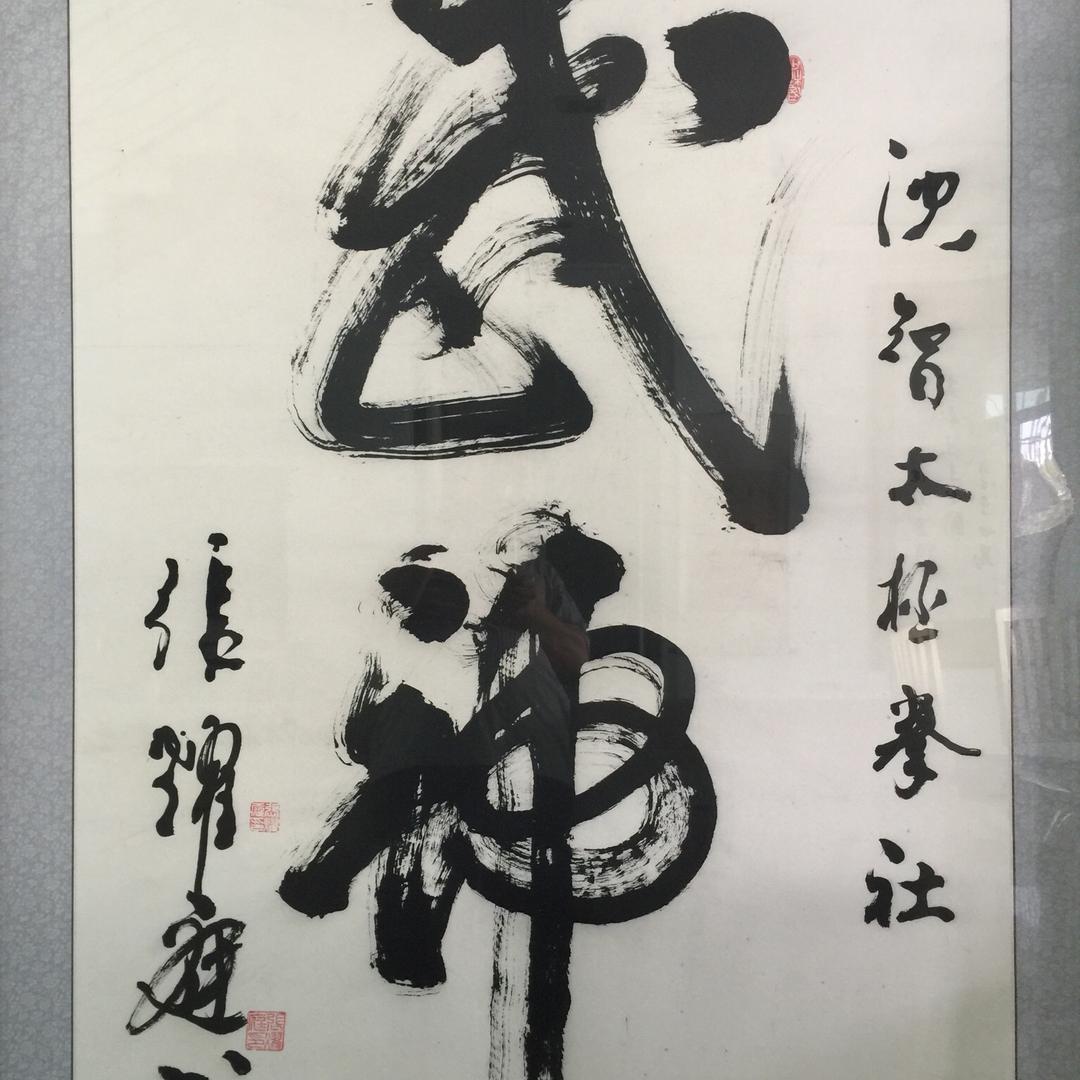 沈智太極拳社
武神
張耀庭